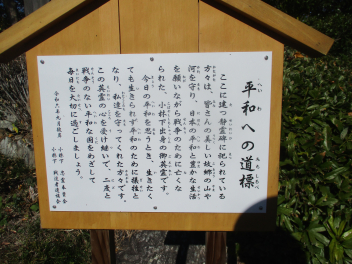 平和への道標
ここに建つ忠霊碑に祀られている
方々は、皆さんの美しい故郷の山や
河を守り、日本の平和と豊かな生活
を願いながら戦争のために亡くな
られた、小林下出身の御英霊です。
今日の平和を思うとき、生きたく
ても生きられず平和のために犠牲と
なり、私達を守ってくれた方々です。
この英霊の心を受け継いで、二度と
戦争のない平和な国をめざして
毎日を大切に過ごしましょう。
令和六年九月建立
小林下
小林下